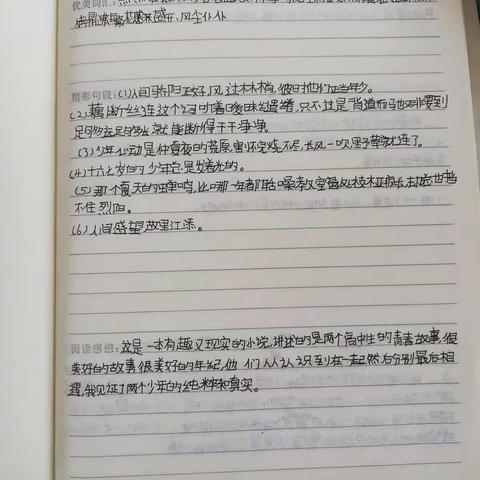 优美词汇:
繁花盛开、风尘仆仆
精彩句段:(1)人间骄阳正好,风过林梢,彼时他们正当年少。
(2)藕断丝连这个词听着暧昧缱绻,只不过是背道而驰又非要到
足够充足够,就能断得干干净净。
(3)少年心动是仲夏夜的荒原,割不完烧不尽,长风一吹,野草就连了天。
(4)十六七岁的少年总是发着光的。
(5)那个夏天的蝉鸣,比哪一年都聒噪,教室窗外枝桠疯长,却总也挡
不住烈阳。
(6)人间感望故里江添。
阅读感想:这是一本有趣又现实的小说,讲述的是两个高中生的青春故事,很
美好的故事,很美好的年纪,他们从认识到在一起然后分别最后相
遇,我见证了两个少年的纯粹和真实。